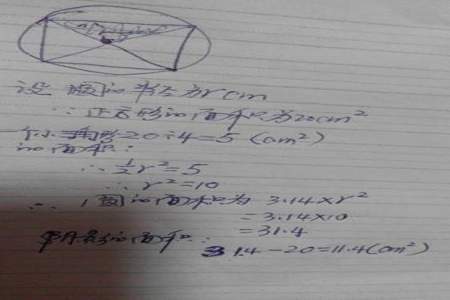 设圆的半径为rcm
∵正方形的面积为20cm²
20÷4=5(cm²)
的面积:
∴½r²=5
∴r²=10
∴圆的面积为 3.14×r²
=3.14×10
=31.4
的面积:
31.4-20=11.4(cm²)